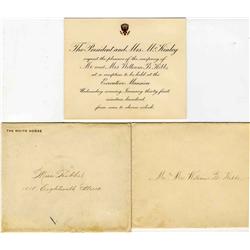 The President and Mrs. McKinley
request the pleasure of the company of
Mr. and Mrs. William B. Hibbs
at a reception to be held at the
Executive Mansion
Wednesday evening January thirty first
nineteen hundred
from nine to eleven o'clock
THE WHITE HOUSE
Miss
Eighteenth Street
Mr. Mrs. William B. Hibbs